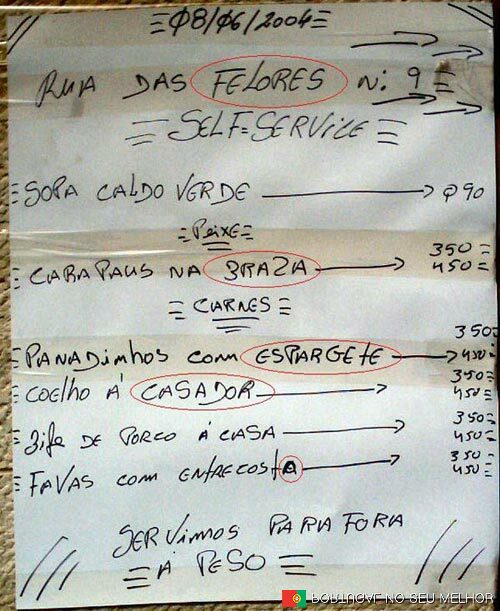 08/06/2004
RUA DAS FELORES N: 9
SELF=SERVICE
SOPA CALDO VERDE 090
PEIXE
350
CARAPAUS NA BRAZA 450
CARNES
350
PANADINHOS COM ESPARGETE 450
350
COELHO Á CASADOR 450
350
BIFE DE PORCO Á CASA 450
350
FAVAS COM ENTRECOSTA 450
SERVIMOS PARA FORA
Á PESO
NO SEU MELHOR